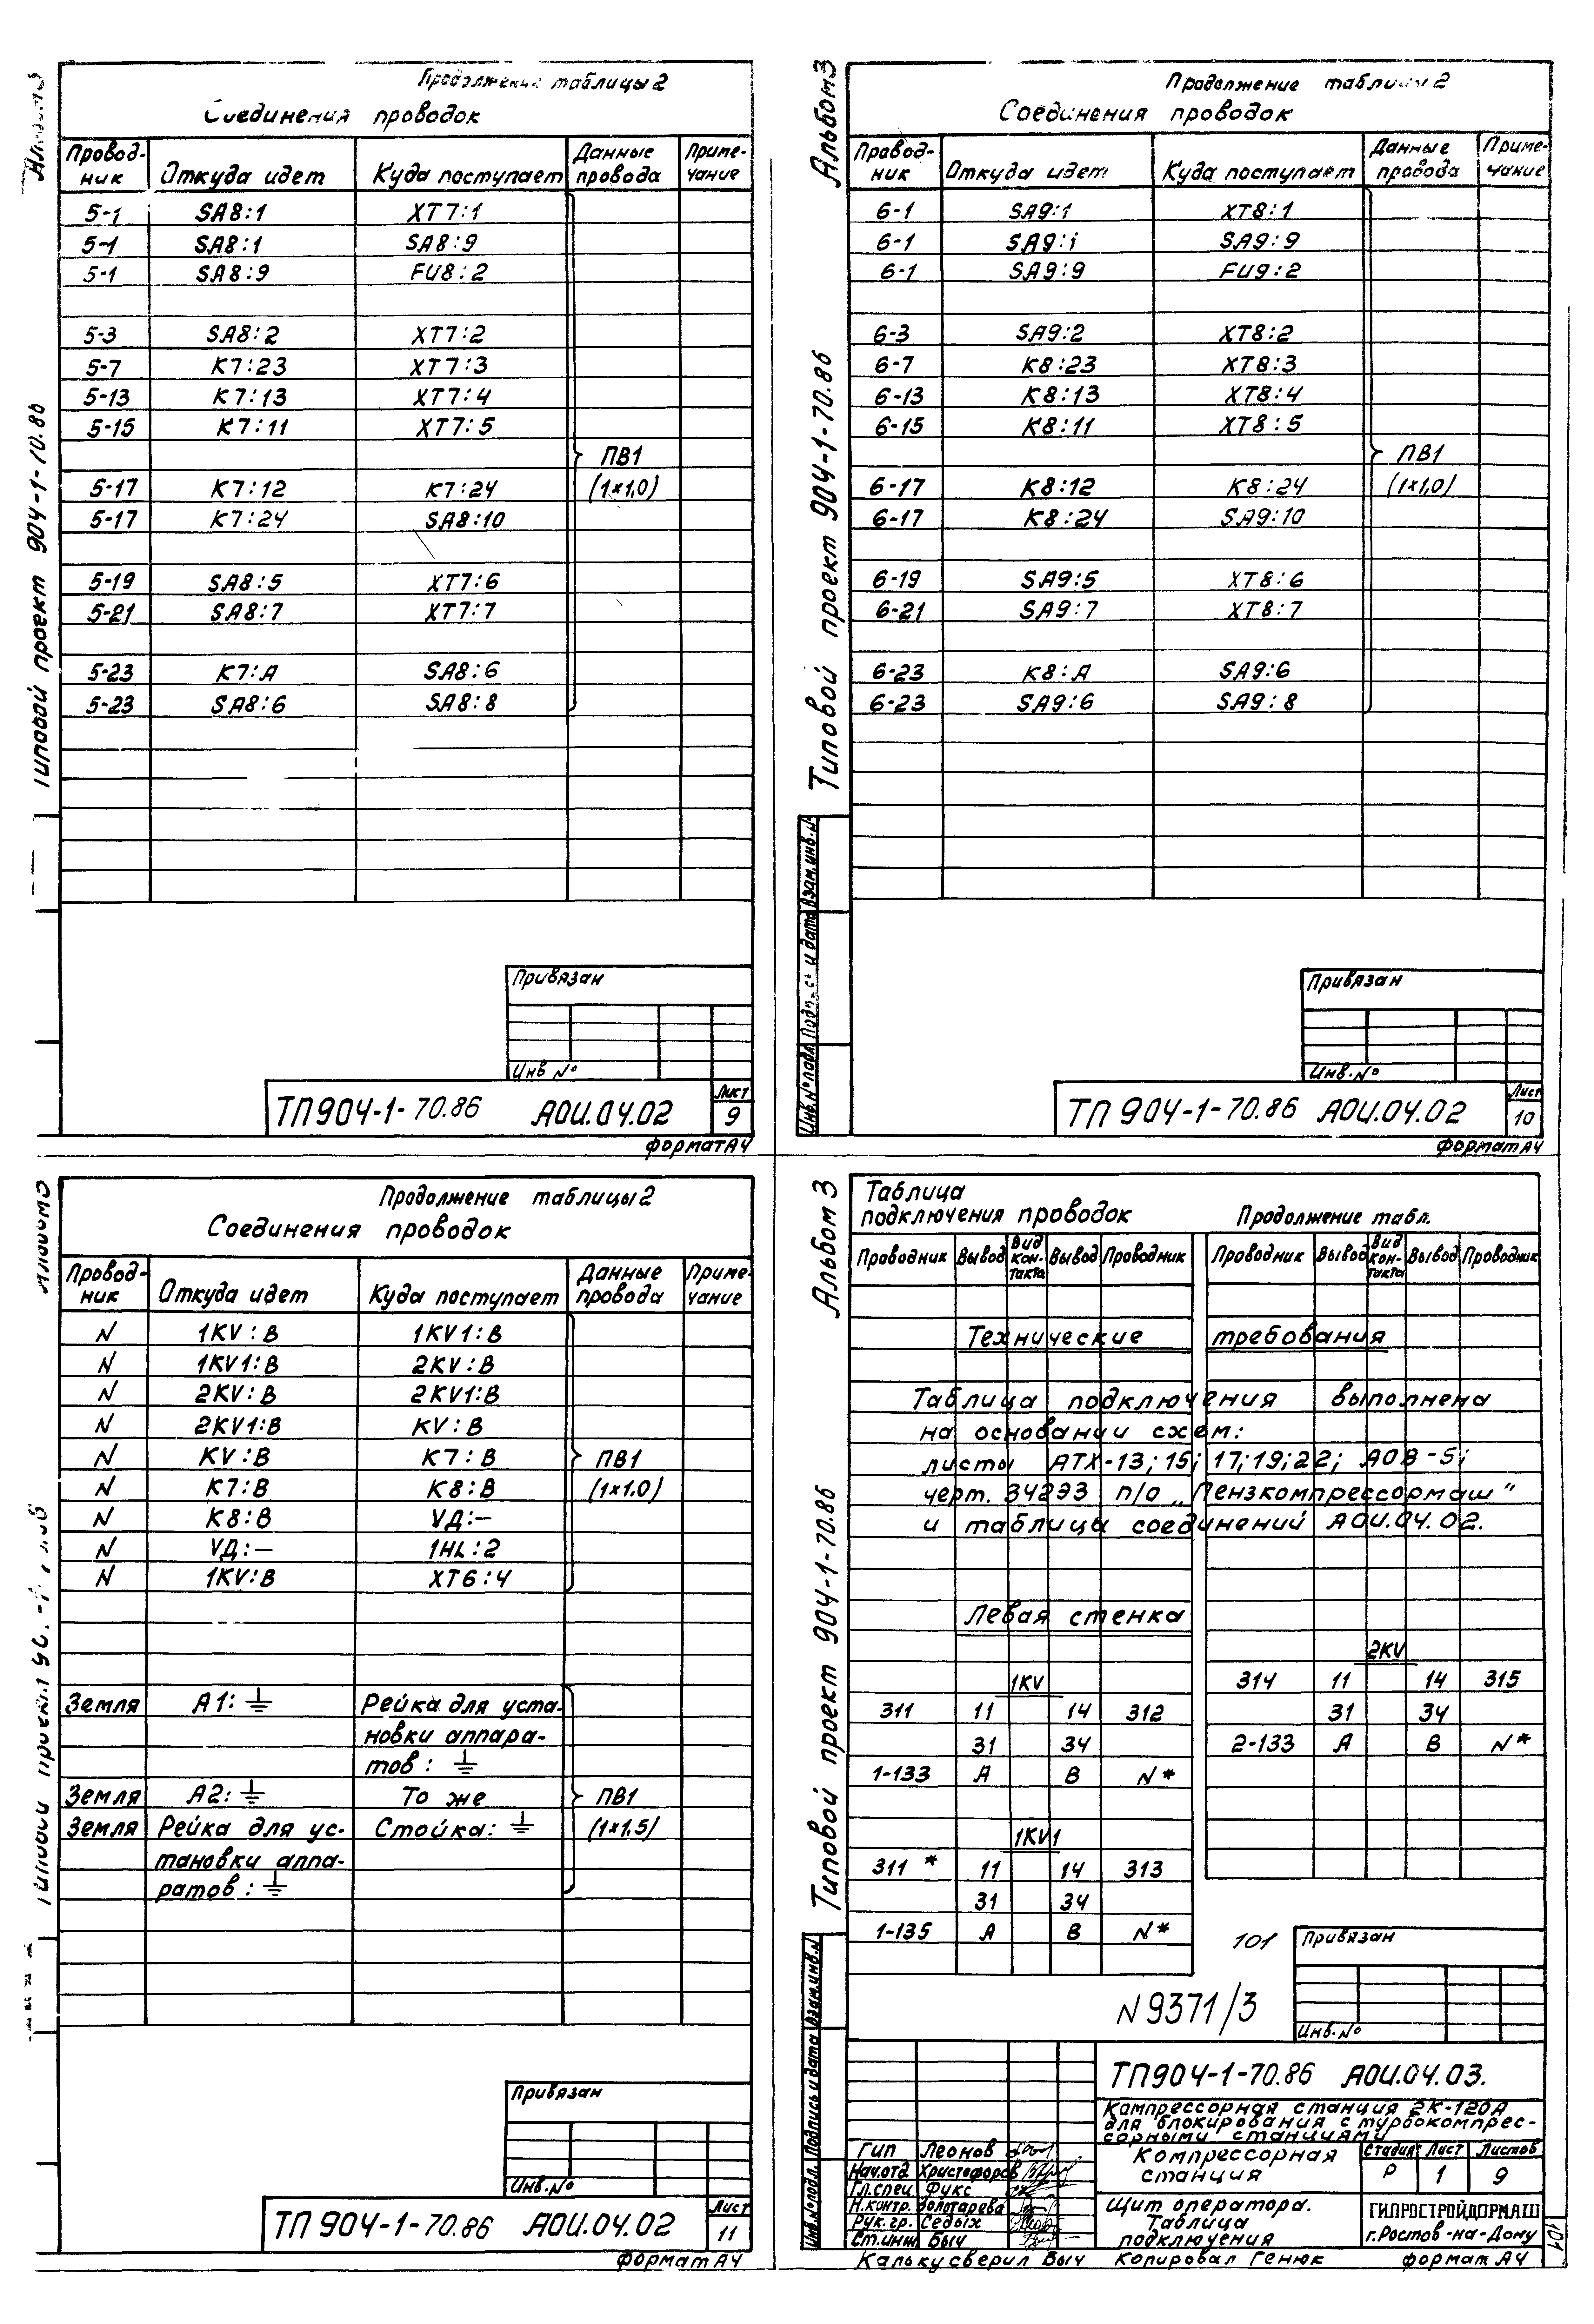 Продолжение таблицы 2
Соединения проводок
Провод-ник Откуда идет Куда поступает Данные провода Приме-чание
5-1 SA8:1 XT7:1
5-1 SA8:1 SA8:9
5-1 SA8:9 FU8:2
5-3 SA8:2 XT7:2
5-7 K7:23 XT7:3
5-13 K7:13 XT7:4
5-15 K7:11 XT7:5
ПВ1
5-17 K7:12 K7:24 (1×1,0)
5-17 K7:24 SA8:10
5-19 SA8:5 XT7:6
5-21 SA8:7 XT7:7
5-23 K7:A SA8:6
5-23 SA8:6 SA8:8
Типовой проект 904-1-70.86
Привязан
Инв №
ТП904-1-70.86 АОИ.04.02
Лист
9
формат А4
Альбом 3
Продолжение таблицы 2
Соединения проводок
Провод-ник Откуда идет Куда поступает Данные провода Приме-чание
6-1 SA9:1 XT8:1
6-1 SA9:1 SA9:9
6-1 SA9:9 FU9:2
6-3 SA9:2 XT8:2
6-7 K8:23 XT8:3
6-13 K8:13 XT8:4
6-15 K8:11 XT8:5
ПВ1
6-17 K8:12 K8:24 (1×1,0)
6-17 K8:24 SA9:10
6-19 SA9:5 XT8:6
6-21 SA9:7 XT8:7
6-23 K8:A SA9:6
6-23 SA9:6 SA9:8
Типовой проект 904-1-70.86
Инв.№ подл. Подп. и дата Взам.инв.№
Привязан
Инв.№
ТП 904-1-70.86 АОИ.04.02
Лист
10
формат А4
Продолжение таблицы 2
Соединения проводок
Провод-ник Откуда идет Куда поступает Данные провода Приме-чание
N 1KV:B 1KV1:B
N 1KV1:B 2KV:B
N 2KV:B 2KV1:B
N 2KV1:B KV:B
N KV:B K7:B ПВ1
N K7:B K8:B (1×1.0)
N K8:B VД:—
N VД:— 1HL:2
N 1KV:B XT6:4
Земля A1:⏚ Рейка для уста-
новки аппара-
тов: ⏚
Земля A2:⏚ То же ПВ1
Земля Рейка для ус- Стойка: ⏚ (1×1,5)
тановки аппа-
ратов: ⏚
Привязан
Инв.№
ТП 904-1-70.86 АОИ.04.02
Лист
11
формат А4
Альбом 3
Таблица
подключения проводок Продолжение табл.
Проводник Вывод Вид кон-такта Вывод Проводник Проводник Вывод Вид кон-такта Вывод Проводник
Технические требования
Таблица подключения выполнена
на основании схем:
листы АТХ-13; 15; 17; 19; 22; АОВ-5;
черт. 342ЭЗ п/о „Пензкомпрессормаш"
и таблица соединений АОИ.04.02.
Левая стенка
1KV
311 11 14 312
31 34
1-133 A B N*
1KV1
311* 11 14 313
31 34
1-135 A B N*
2KV
314 11 14 315
31 34
2-133 A B N*
Типовой проект 904-1-70.86
Инв.№ подл. Подпись и дата Взам.инв.№
101
N 9371/3
Привязан
Инв.№
ТП904-1-70.86 АОИ.04.03.
Компрессорная станция 2К-120А
для блокирования с турбокомпрес-
сорными станциями
Гип Леонов
Нач.отд. Христофоров
Гл.спец Фукс
Н.контр. Золотарева
Рук.гр. Седых
Ст.инж Быч
Компрессорная
станция
Стадия Лист Листов
Р 1 9
Щит оператора.
Таблица
подключения
ГИПРОСТРОЙДОРМАШ
г.Ростов-на-Дону
Кальку сверил Быч Копировал Генюк формат А4
101